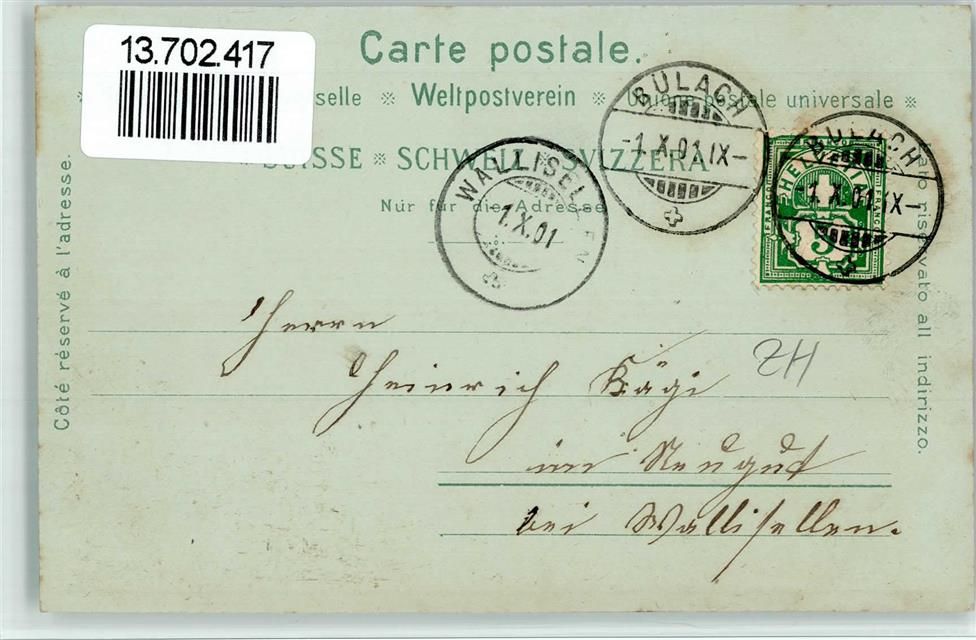 13.702.417
Carte postale.
selle ※ Weltpostverein ※ Unione postale universale ※
SUISSE ※ SCHWEIZ ※ SVIZZERA
Nur für die Adresse
Côté réservé à l'adresse.
lato riservato all indirizzo.
BÜLACH
-1.X.01.IX-
BÜLACH
-1.X.01.IX-
WALLISELLEN
1.X.01
HELVETIA
FRANCO
FRANCO
5
ZH
Herrn
Heinrich Kägi
im Neugut
bei Wallisellen.